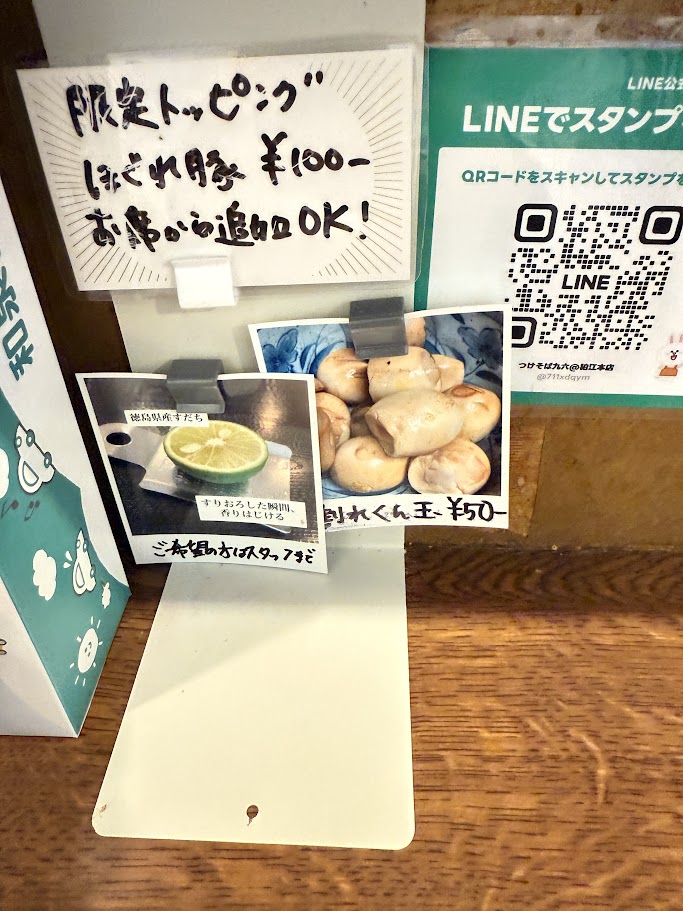 限定トッピング
ほぐれ豚 ¥100-
お席から追加OK!
徳島県産すだち
すりおろした瞬間、
香りはじける
ご希望の方はスタッフまで
割れくん玉 ¥50-
LINE公式
LINEでスタンプ
QRコードをスキャンしてスタンプを
LINE
つけそば九六@狛江本店
@711xdqym